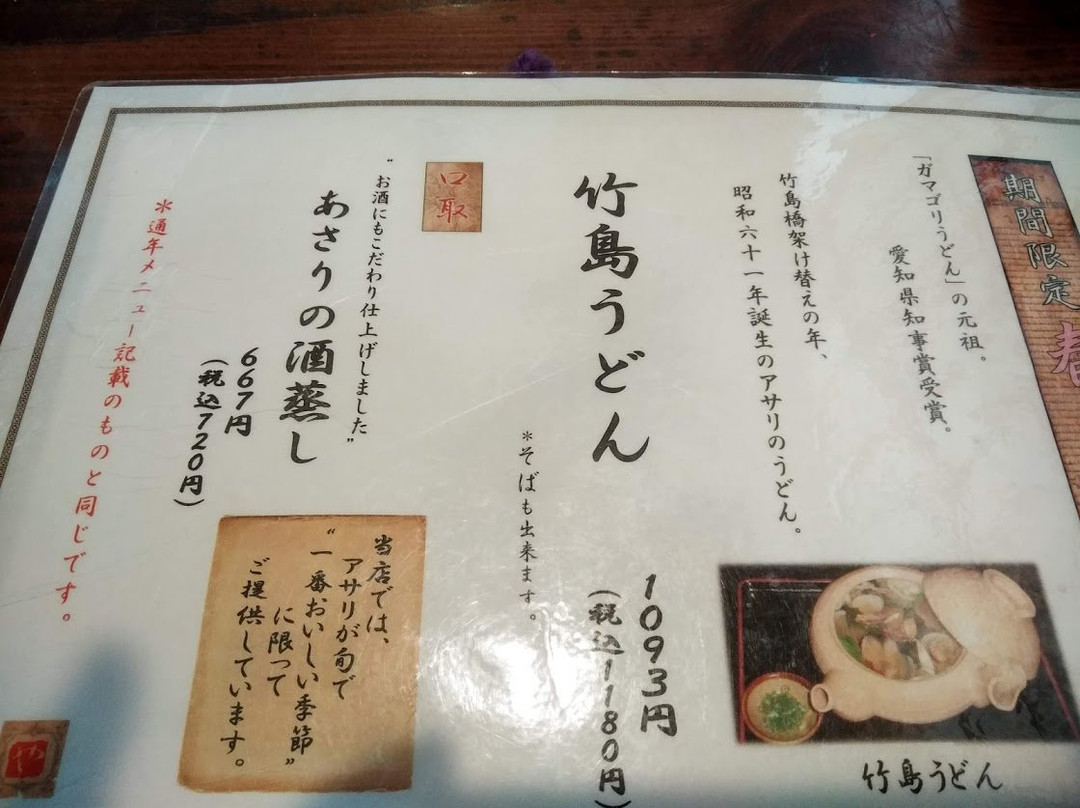 期間限定 春
「ガマゴリうどん」の元祖。
愛知県知事賞受賞。
竹島橋架け替えの年、
昭和六十一年誕生のアサリのうどん。
竹島うどん
1093円
(税込1180円)
*そばも出来ます。
竹島うどん
口取
"お酒にもこだわり仕上げしました"
あさりの酒蒸し
667円
(税込720円)
当店では、
アサリが旬で
"一番おいしい季節"
に限って
ご提供しています。
*通年メニュー記載のものと同じです。